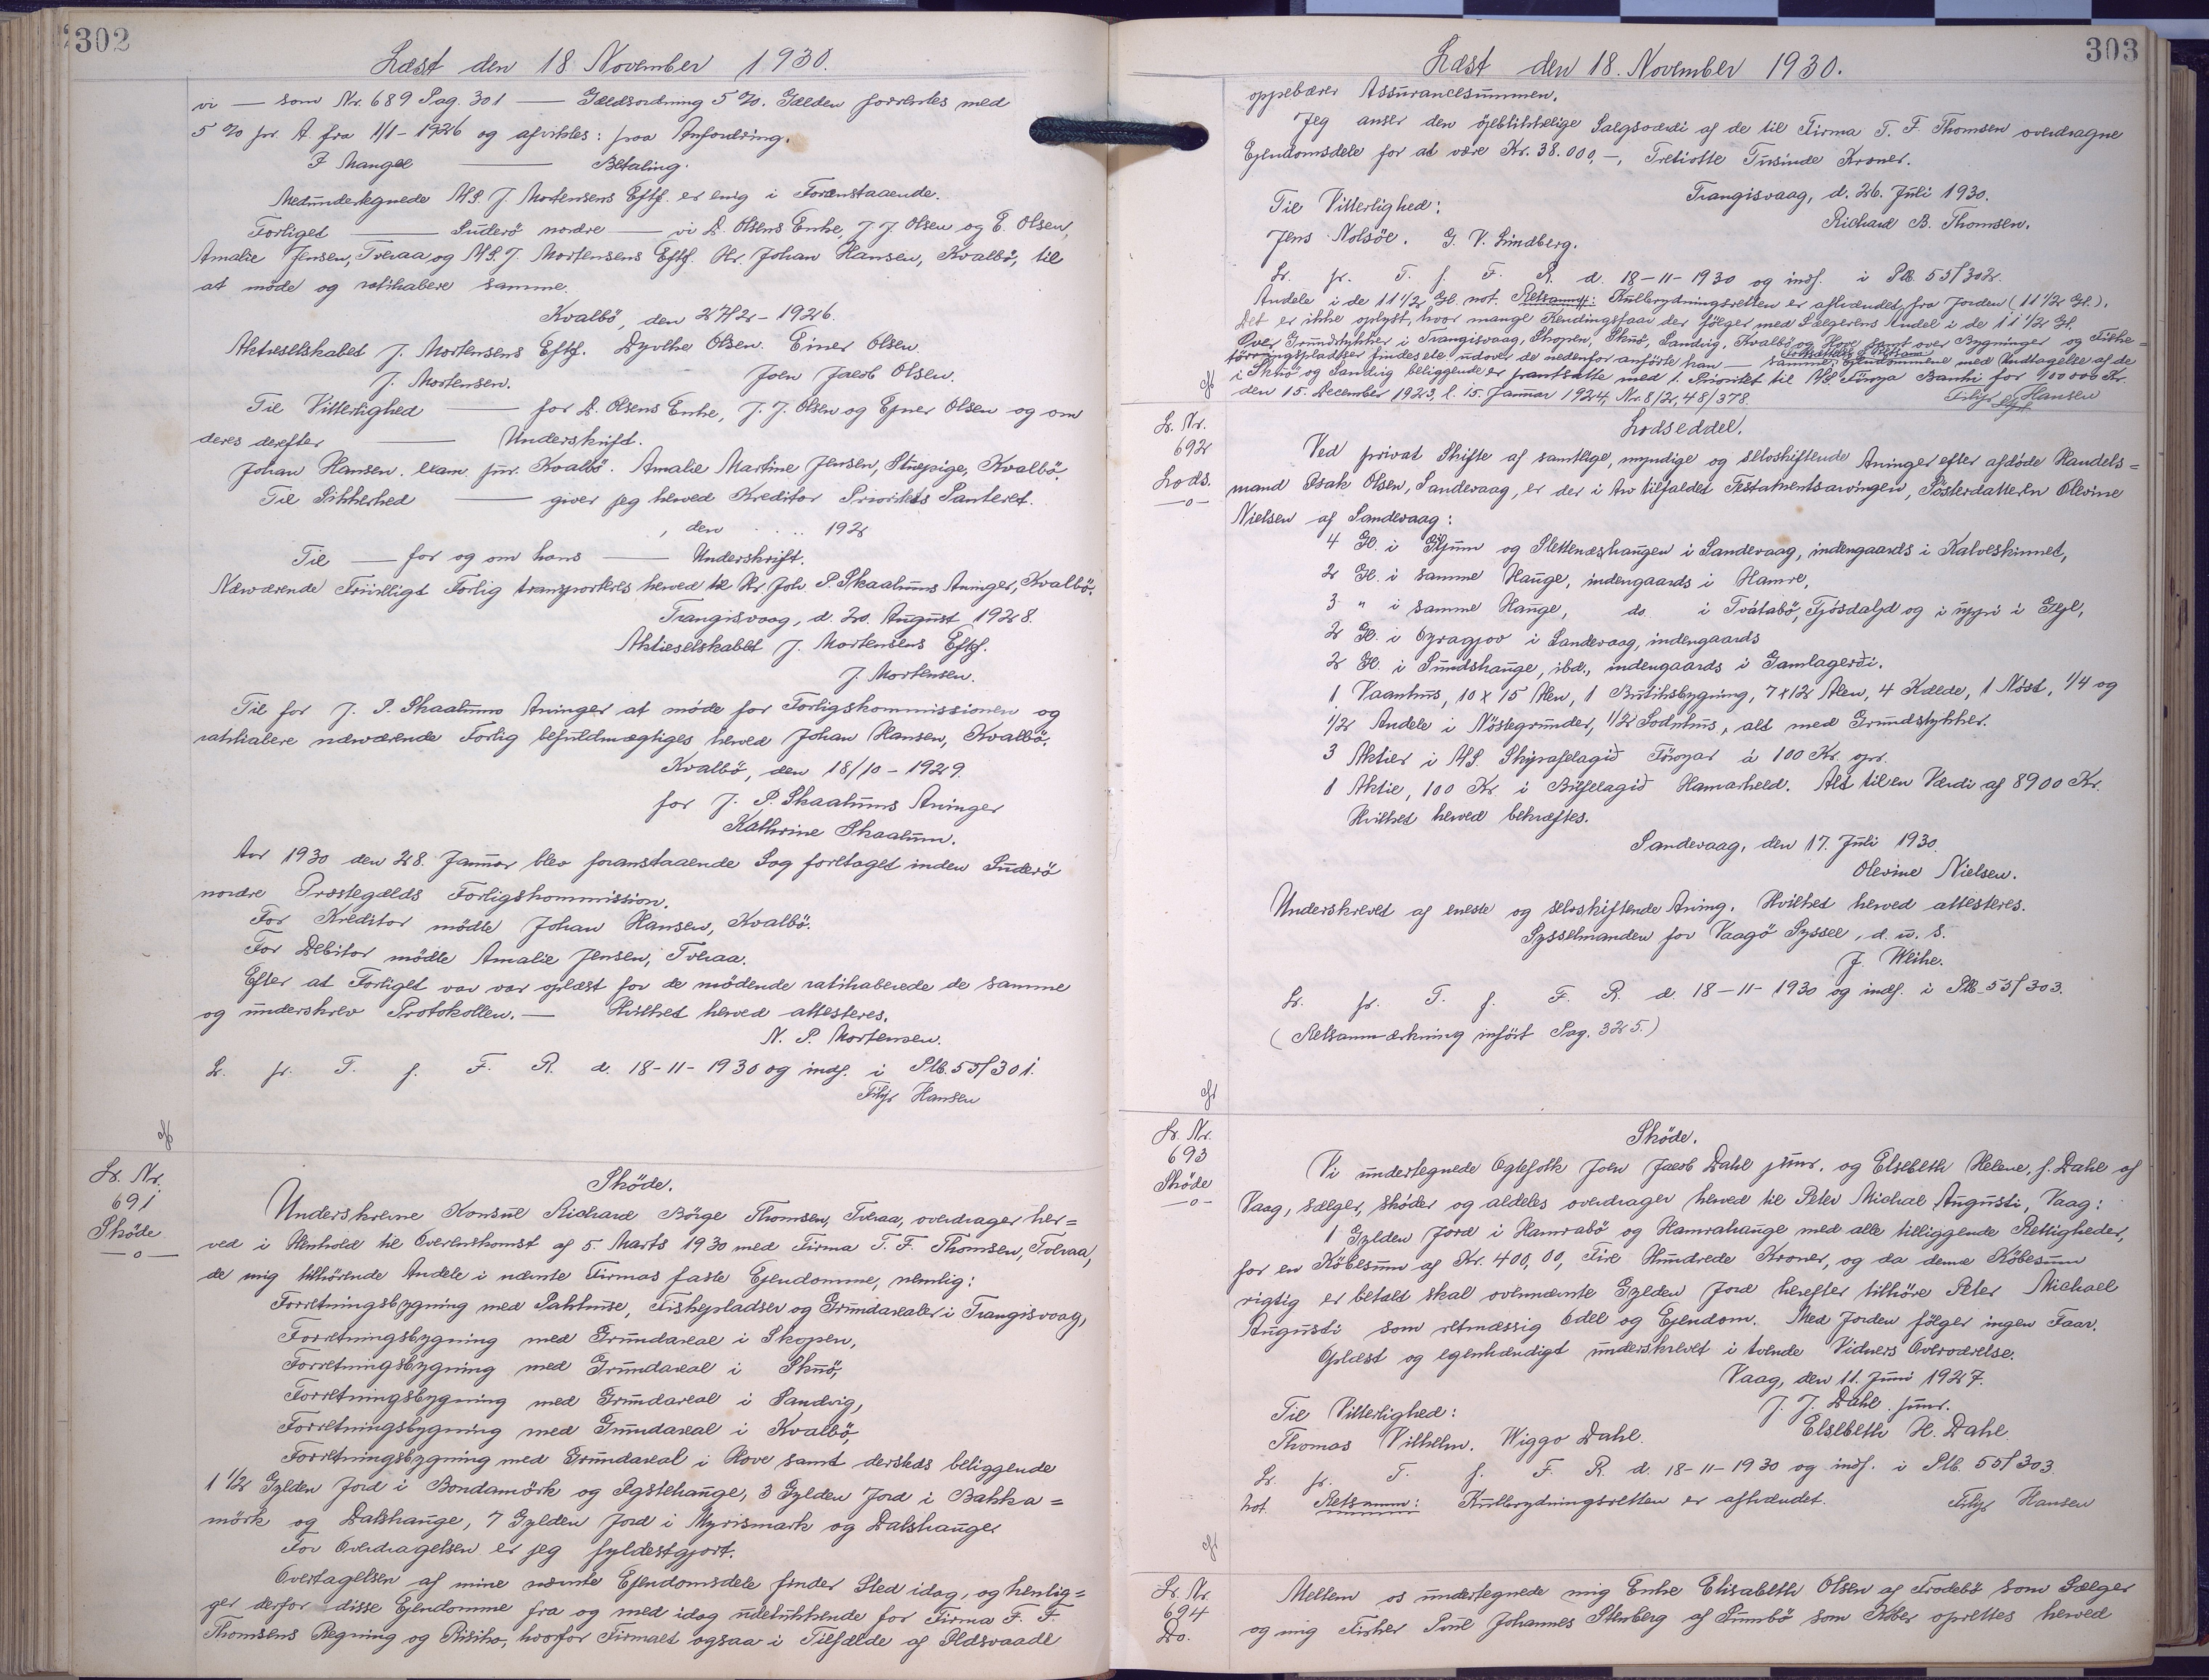 302
Læst den 18 November 1930.
vi — som Nr. 689 Pag. 301 — Gældsordning 5 %. Gælden forrentes med
5 % pr. A. fra 1/1-1926 og afvikles: paa Anfordring.
I Mangel — Betaling.
Medundertegnede A/S. J. Mortensens Eftf. er enig i Foranstaaende.
Forliget — Suderö nordre — vi D. Olsens Enke, J. J. Olsen og E. Olsen,
Amalie Jensen, Tveraa og A/S. J. Mortensens Eftf. Hr. Johan Hansen, Kvalbö, til
at möde og ratihabere samme.
Kvalbö, den 27/2-1926.
Aktieselskabet J. Mortensens Eftf. Dyvike Olsen. Einer Olsen.
J. Mortensen. Joen Jacob Olsen.
Til Vitterlighed — for D. Olsens Enke, J. J. Olsen og Ejner Olsen og om
deres derefter — Underskrift.
Johan Hansen. exam. jur. Kvalbö. Amalie Martine Jensen, Stuepige, Kvalbö.
Til Sikkerhed — giver jeg herved Kreditor Prioritets Panteret.
, den .. 192
Til — for og om hans — Underskrift.
Nærværende Frivilligt Forlig transporteres herved til Hr. Joh. P. Skaalums Arvinger, Kvalbö.
Trangisvaag, d. 20. August 1928.
Aktieselskabet J. Mortensens Eftf.
J. Mortensen.
Til for J. P. Skaalums Arvinger at möde for Forligskommissionen og
ratihabere nærværende Forlig befuldmægtiges herved Johan Hansen, Kvalbö.
Kvalbö, den 18/10-1929.
for J. P. Skaalums Arvinger
Kathrine Skaalum.
Aar 1930 den 28. Januar blev foranstaaende Sag foretaget inden Suderö
nordre Præstegælds Forligskommission.
For Kreditor mödte Johan Hansen, Kvalbö.
For Debitor mödte Amalie Jensen, Tveraa.
Efter at Forliget var var oplæst for de mödende ratihaberede de samme
og underskrev Protokollen. — Hvilket herved attesteres.
N. P. Mortensen.
L. pr. T. f. F. R. d. 18-11-1930 og indf. i Plb. 55/301.
Filip Hansen
L. Nr.
691
Sköde
—o—
Sköde.
Underskrevne Konsul Richard Börge Thomsen, Tveraa, overdrager her=
ved i Henhold til Overenskomst af 5. Marts 1930 med Firma T. F. Thomsen, Tveraa,
de mig tilhörende Andele i nævnte Firmas faste Ejendomme, nemlig:
Forretningsbygning med Pakhuse, Fiskepladser og Grundarealer i Trangisvaag,
Forretningsbygning med Grundareal i Skopen,
Forretningsbygning med Grundareal i Skuö,
Forretningsbygning med Grundareal i Sandvig,
Forretningsbygning med Grundareal i Kvalbö,
Forretningsbygning med Grundareal i Hove samt dersteds beliggende
1 1/2 Gylden Jord i Bondamörk og Ogstehauge, 3 Gylden Jord i Bakka=
mörk og Dalshauge, 7 Gylden Jord i Myrismark og Dalshauger
For Overdragelsen er jeg fyldestgjort.
Overtagelsen af mine nævnte Ejendomsdele finder Sted idag, og henlig=
ger derfor disse Ejendomme fra og med idag udelukkende for Firma T. F.
Thomsens Regning og Risiko, hvorfor Firmaet ogsaa i Tilfælde af Ildsvaade
303
Læst den 18. November 1930.
oppebærer Assurancesummen.
Jeg anser den öjeblikkelige Salgsværdi af de til Firma T. F. Thomsen overdragne
Ejendomsdele for at være Kr. 38.000,-, Tretiotte Tusinde Kroner.
Trangisvaag, d. 26. Juli 1930.
Til Vitterlighed: Richard B. Thomsen.
Jens Nolsöe. G. V. Lindberg.
L. pr. T. f. F. R. d. 18-11-1930 og indf. i Plb. 55/302.
Andele i de 11 1/2 Gl. not. Retsanm: Kulbrydningsretten er afhændet fra Jorden (11 1/2 Gl.).
Det er ikke oplyst, hvor mange Kendingsfaar der fölger med Sælgerens Andel i de 11 1/2 Gl.
Over Grundstykker i Trangisvaag, Skopen, Skuö, Sandvig, Kvalbö og Hove samt over Bygninger og Fiske=
törringspladser findes ej udover de nedenfor anförte han — samme: Ejendommene med Undtagelse af de
i Skuö og Sandvig beliggende er pantsatte med 1. Prioritet til A/S. Föroya Banki for 400000 Kr.
den 15. December 1923, l. 15. Januar 1924, Nr. 8/2, 48/378. Filip Hansen
L. Nr.
692
Lods.
—o—
Lodseddel.
Ved privat Skifte af samtlige, myndige og selvskiftende Arvinger efter afdöde Handels=
mand Isak Olsen, Sandevaag, er der i Arv tilfaldet Testamentsarvingen, Sösterdatteren Olevine
Nielsen af Sandevaag:
4 Gl. i Giljum og Slettenæshaugen i Sandevaag, indengaards i Kalveskinnet,
2 Gl. i samme Hauge, indengaards i Hamre,
3 " i samme Hauge, do. i Tvátabö, Fjósdalid og i uppi i Gejl,
2 Gl. i Oyragjov i Sandevaag, indengaards
2 Gl. i Sundshauge, ibd., indengaards i Gamlagerdi.
1 Vaanhus, 10 x 15 Alen, 1 Butiksbygning, 7 x 12 Alen, 4 Kælde, 1 Nöst, 1/4 og
1/2 Andele i Nöstegrunder, 1/2 Sodnhus, alt med Grundstykker.
3 Aktier i A/S. Skipafelagið Föroyar á 100 Kr. opr.
1 Aktie, 100 Kr. i Búfelagið Hamarheld. Alt til en Værdi af 8900 Kr.
Hvilket herved bekræftes.
Sandevaag, den 17. Juli 1930.
Olevine Nielsen.
Underskrevet af eneste og selvskiftende Arving. Hvilket herved attesteres.
Sysselmanden for Vaagö Syssel, d. u. S.
J. Weihe.
L. pr. T. f. F. R. d. 18-11-1930 og indf. i Plb. 55/303.
(Retsanmærkning inført Pag. 325.)
L. Nr.
693
Sköde
—o—
Sköde.
Vi undertegnede Ægtefolk Joen Jacob Dahl junr. og Elsebeth Helene, f. Dahl af
Vaag, sælger, sköder og aldeles overdrager herved til Peter Michael Augusti, Vaag:
1 Gylden Jord i Hamrabö og Hamrahauge med alle tilliggende Rettigheder,
for en Köbesum af Kr. 400,00, Fire Hundrede Kroner, og da denne Köbesum
rigtig er betalt skal ovennævnte Gylden Jord herefter tilhöre Peter Michael
Augusti som retmæssig Odel og Ejendom. Med Jorden fölger ingen Faar.
Oplæst og egenhændigt underskrevet i tvende Vidners Overværelse.
Vaag, den 11. Juni 1927.
Til Vitterlighed: J. J. Dahl junr.
Thomas Vilhelm. Wiggo Dahl. Elsebeth H. Dahl.
L. pr. T. f. F. R. d. 18-11-1930 og indf. i Plb. 55/303.
not. Retsanm: Kulbrydningsretten er afhændet. Filip Hansen
L. Nr.
694
Do.
Mellem os undertegnede mig Enke Elisabeth Olsen af Frodebö som Sælger
og mig Fisker Poul Johannes Stenberg af Sumbö som Köber oprettes herved